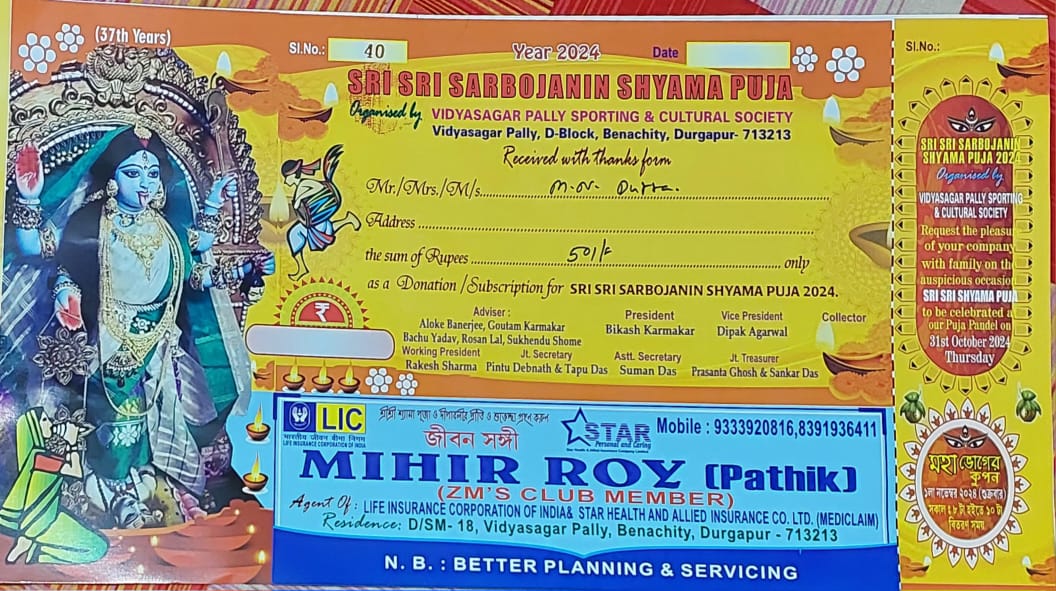 (37th Years)
Sl.No.: 40
Year 2024
Date
SRI SRI SARBOJANIN SHYAMA PUJA
Organised by VIDYASAGAR PALLY SPORTING & CULTURAL SOCIETY
Vidyasagar Pally, D-Block, Benachity, Durgapur- 713213
Received with thanks form
Mr./Mrs./M/s. M.N. Dutta.
Address
the sum of Rupees 501/- only
as a Donation /Subscription for SRI SRI SARBOJANIN SHYAMA PUJA 2024.
₹
Adviser :
Aloke Banerjee, Goutam Karmakar
Bachu Yadav, Rosan Lal, Sukhendu Shome
President
Bikash Karmakar
Vice President
Dipak Agarwal
Collector
Working President
Rakesh Sharma
Jt. Secretary
Pintu Debnath & Tapu Das
Astt. Secretary
Suman Das
Jt. Treasurer
Prasanta Ghosh & Sankar Das
LIC
भारतीय जीवन बीमा निगम
LIFE INSURANCE CORPORATION OF INDIA
শ্রীশ্রী শ্যামা পূজা ও দীপাবলীর প্রীতি ও শুভেচ্ছা গ্রহণ করুন
জীবন সঙ্গী
STAR
Personal and Caring
Star Health & Allied Insurance Company Limited
Mobile : 9333920816,8391936411
MIHIR ROY (Pathik)
(ZM'S CLUB MEMBER)
Agent Of : LIFE INSURANCE CORPORATION OF INDIA& STAR HEALTH AND ALLIED INSURANCE CO. LTD. (MEDICLAIM)
Residence: D/SM- 18, Vidyasagar Pally, Benachity, Durgapur - 713213
N. B. : BETTER PLANNING & SERVICING
Sl.No.:
SRI SRI SARBOJANIN
SHYAMA PUJA 2024
Organised by
VIDYASAGAR PALLY SPORTING
& CULTURAL SOCIETY
Request the pleasu
of your company
with family on the
auspicious occasion
SRI SRI SHYAMA PUJA
to be celebrated a
our Puja Pandel on
31st October 2024
Thursday
মহা ভোগের
কুপন
১লা নভেম্বর ২০২৪ (শুক্রবার)
সকাল ৮ টা হইতে ১০ টা
বিতরণ সময়